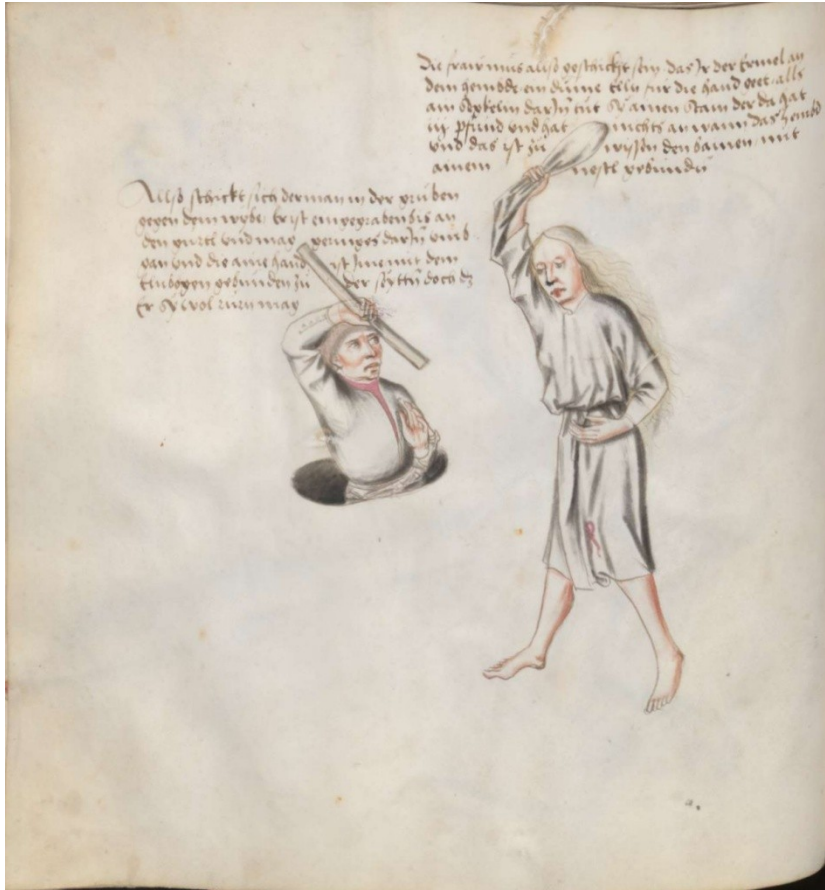 Die fraw mus also geschickt sein das Ir der Ermel an
dem hemdde ein dŭme Elln fŭr die hand geet alls
am Secklin dar In tŭt Sy ainen Stain der da hat
iij pfŭnd vnd hat nichts an wann das hembd
vnd das ist zŭ den bainen mit
ainem nestl gebŭnden
Allso schickt sich der man in der grŭben
gegen dem weybe Er ist eingegraben bis an
den gŭrtl vnd mag geringes dar In vmb
gan vnd die aine hand ist Ime mit dem
Elnbogen gebŭnden zŭ der seyttŭ doch dz
Er Sy wol rŭrn mag